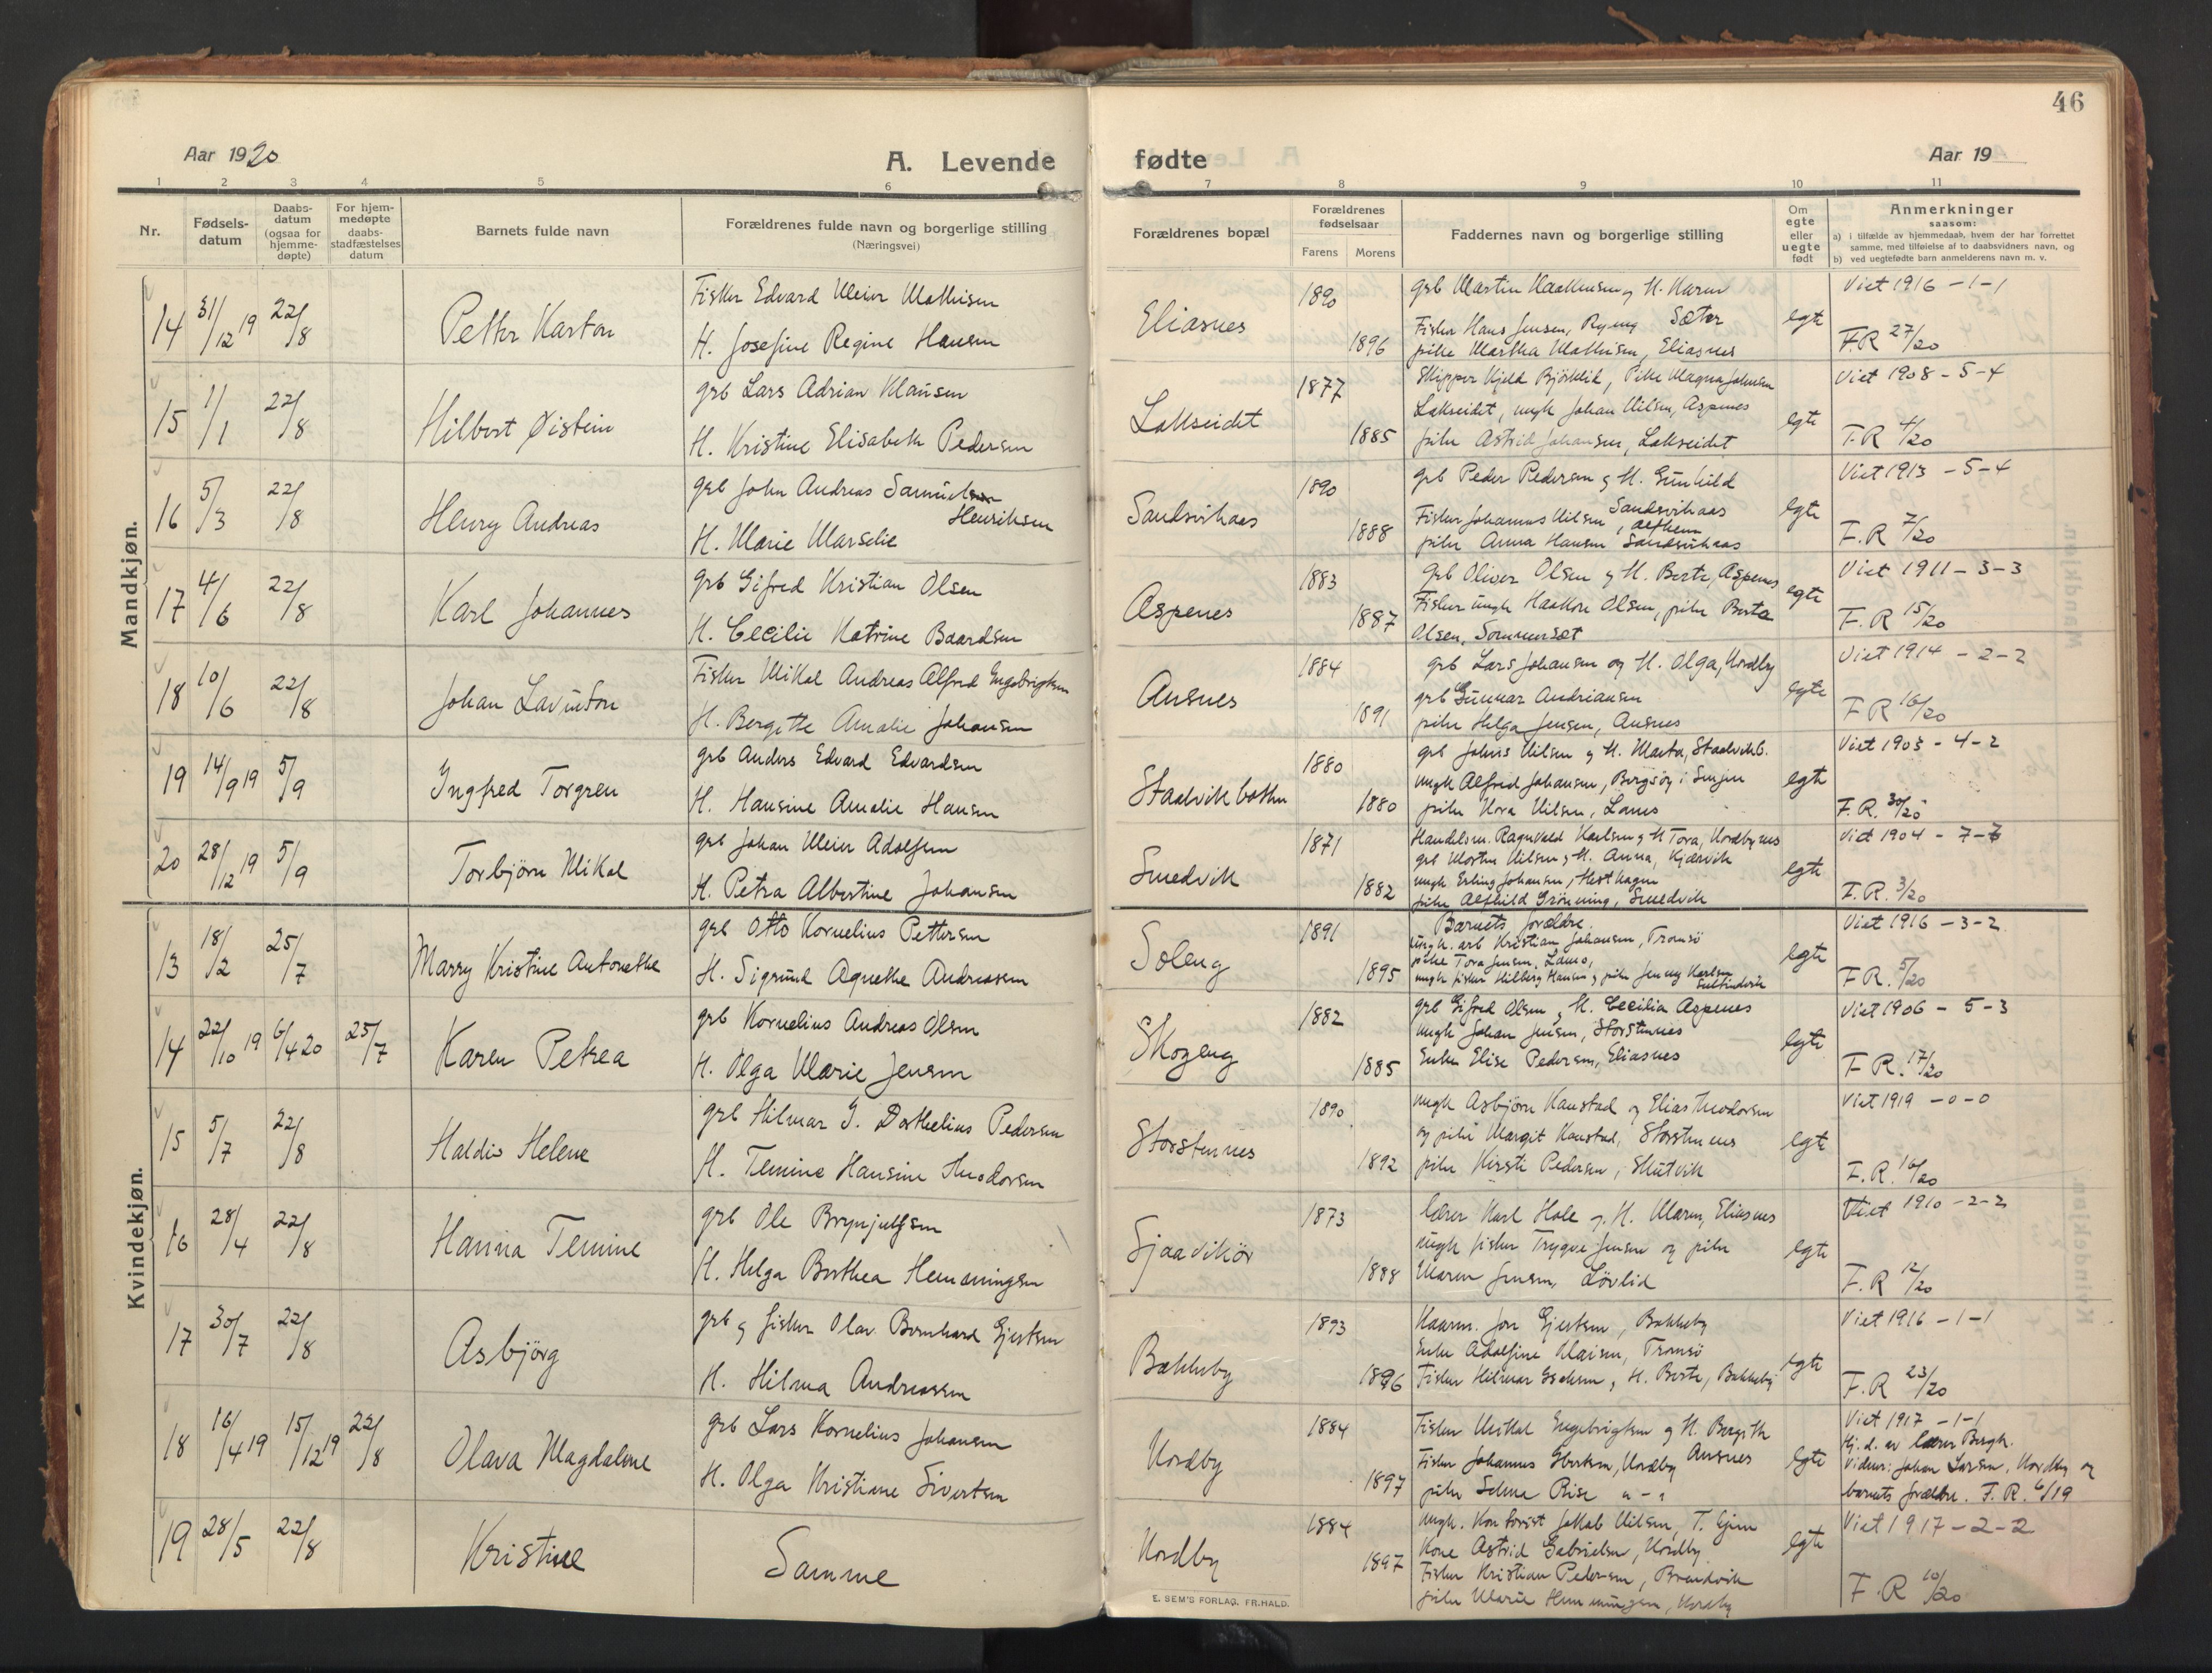 46
Aar 1920
A. Levende
fødte
Aar 19
1 2 3 4 5 6 7 8 9 10 11
Nr.
Fødsels-
datum
Daabs-
datum
(ogsaa for
hjemme-
døpte)
For hjem-
medøpte
daabs-
stadfæstelses
datum
Barnets fulde navn
Forældrenes fulde navn og borgerlige stilling
(Næringsvei)
Forældrenes bopæl
Forældrenes
fødselsaar
Farens Morens
Faddernes navn og borgerlige stilling
Om
egte
eller
uegte
født
Anmerkninger
saasom:
a) i tilfælde av hjemmedaab, hvem der har forrettet
samme, med tilføielse af to daabsvidners navn, og
b) ved uegtefødte barn anmelderens navn m. v.
Mandkjøn.
14 31/12 19 22/8 Petter Karton
Fisker Edvard Meier Mathisen
H. Josefine Regine Hansen
Eliasnes 1890 1896
grb Martin Haakensen og H. Karen
Sæter
Fisker Hans Jensen, Ryeng
pike Martha Mathisen, Eliasnes
egte
Viet 1916 - 1 - 1
F.R 27/20
15 1/1 22/8 Hilbert Øistein
grb Lars Adrian Klausen
H. Kristine Elisabeth Pedersen
Lakseidet 1877 1885
Skipper Kjeld Bjørklid, Pike Magna Johnsen
Lakseidet, ungk Johan Nilsen, Aspenes
pike Astrid Johansen, Lakseidet
egte
Viet 1908 - 5 - 4
F.R 4/20
16 5/3 22/8 Henry Andreas
grb John Andreas Samuelsen
Henriksen
H. Marie Marselie
Sandsvikaas 1890 1888
grb Peder Pedersen og H. Gunhild
Sandsvikaas
Fisker Johannes Nilsen,
pike Anna Hansen Sandsvikaas
egte
Viet 1913 - 5 - 4
F.R 7/20
17 4/6 22/8 Karl Johannes
grb Gifred Kristian Olsen
H. Cecilie Katrine Baardsen
Aspenes 1883 1887
grb Oliver Olsen og H. Berte, Aspenes
Fisker ungk Haakon Olsen, pike Berta
Olsen, Sommerset
egte
Viet 1911 - 3 - 3
F.R 15/20
18 10/6 22/8 Johan Lavinton
Fisker Mikal Andreas Alfred Ingebrigtsen
H. Bergitte Amalie Johansen
Ansnes 1884 1891
grb Lars Johansen og H. Olga, Nordby
grb Gunnar Andriassen
pike Helga Jensen, Ansnes
egte
Viet 1914 - 2 - 2
F R 16/20
19 14/9 19 5/9 Ingfred Torgren
grb Anders Edvard Edvardsen
H. Hansine Amalie Hansen
Staalvikbotten 1880 1880
grb Johns Nilsen og H. Marta, Staalvikb.
ungk Alfred Johansen, Bergsøy i Senjen
pike Nora Nilsen, Lanes
egte
Viet 1903 - 4 - 2
F.R. 30/20
20 28/12 19 5/9 Torbjörn Mikal
grb Johan Meier Adolfsen
H. Petra Albertine Johansen
Smedvik 1871 1882
Handelsm. Ragnvald Karlsen og H Tora, Nordbynes
grb Morten Nilsen og H. Anna, Kjærvik
ungk Erling Johansen, Hesthagen
pike Alfhild Grönning, Smedvik
egte
Viet 1904 - 7 - 6
F.R. 3/20
Kvindekjøn.
13 18/2 25/7 Marry Kristine Antonethe
grb Otto Kornelius Pettersen
H. Sigrund Agnethe Andreassen
Soleng 1891 1895
Barnets forældre
ungk. arb Kristian Johansen, Tromsö
pike Tora Jensen,
ungk fisker Hilberg Hansen og pike Jenny Karlsen
egte
Viet 1916 - 3 - 2
F R. 5/20
14 22/10 19 6/4 20 25/7 Karen Petrea
grb Kornelius Andreas Olsen
H. Olga Marie Jensen
Skogeng 1882 1885
grb Gifred Olsen, H. Cecilia Aspenes
ungk Johan Jensen, Storstennes
Enke Elise Pedersen, Eliasnes
egte
Viet 1906 - 5 - 3
F R. 17/20
15 5/7 22/8 Haldis Helene
grb Hilmar J. Dorthelius Pedersen
H. Temine Hansine Theodorsen
Storstennes 1890 1892
ungk Asbjörn Kanstad og Elias Theodorsen
og pike Margit Kanstad, Storstennes
pike Kirsti Pedersen, Skutvik
egte
Viet 1919 - 0 - 0
F.R. 16/20
16 28/4 22/8 Hanna Temine
grb Ole Brynjulfsen
H. Helga Berthea Hemmingsen
Sjaavikör 1873 1888
lærer Karl Hole og H. Maren, Eliasnes
ungk fisker Trygve Jensen og pike
Maren Jensen, Løvlid
egte
Viet 1910 - 2 - 2
F.R 12/20
17 30/7 22/8 Asbjörg
grb og fisker Olav Bernhard Gjertsen
H. Hilma Andreassen
Bakkeby 1893 1896
Kaarm. Jon Gjertsen, Bakkeby
Enke Adolfine Olaisen, Tromsö
Fisker Hilmar Isaksen, H. Berte, Bakkeby
egte
Viet 1916 - 1 - 1
F.R 23/20
18 16/4 19 15/12 19 22/8 Olava Magdalene
grb Lars Kornelius Johansen
H. Olga Kristiane Sivertsen
Nordby 1884 1897
Fisker Mikal Ingebrigtsen og H. Bergith
Ansnes
Fisker Johannes Ebertsen, Nordby
pike Selma Rise " - "
egte
Viet 1917 - 1 - 1
Hj. d. av lærer Bergh.
Vidner: Johan Larsen, Nordby og
barnets forældre. F.R. 6/19
19 28/5 22/8 Kristine
Samme
Nordby 1884 1897
ungk. Kontorist Jakob Nilsen, T.
Kone Astrid Gabrielsen, Nordby
Fisker Kristian Pedersen, Brendvik
pike Marie Hemmingsen, Nordby
egte
Viet 1917 - 2 - 2
F.R 10/20
E. SEM'S FORLAG. FR.HALD.